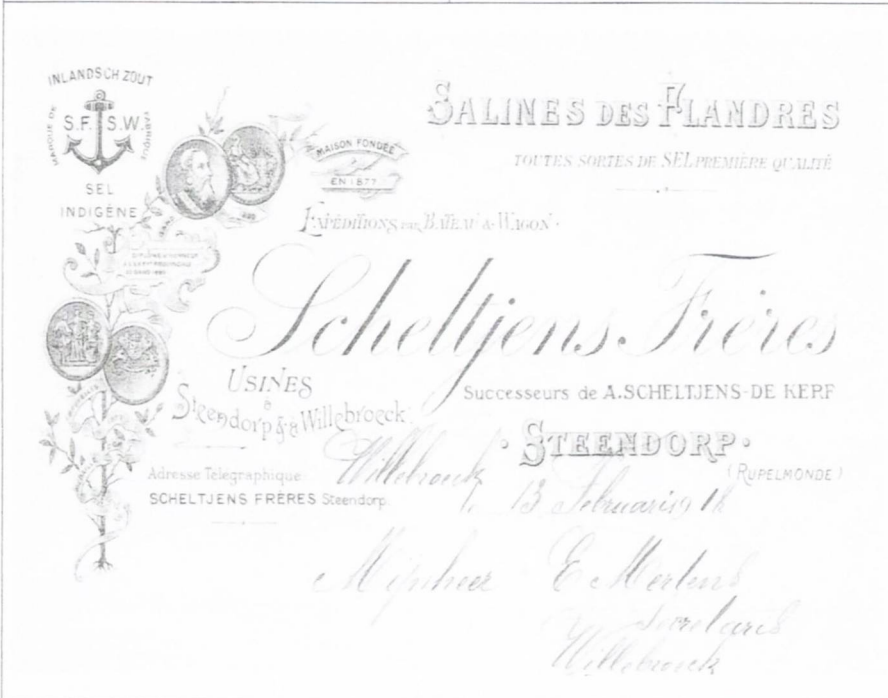 INLANDSCH ZOUT
MARQUE DE FABRIQUE
S.F. S.W.
SEL
INDIGÈNE
MAISON FONDÉE
EN 1877
SALINES DES FLANDRES
TOUTES SORTES DE SEL PREMIÈRE QUALITÉ
EXPÉDITIONS PAR BATEAU & WAGON.
Scheltjens Frères
USINES
à
Steendorp & à Willebroeck
Successeurs de A. SCHELTJENS-DE KERF
· STEENDORP ·
(RUPELMONDE)
Adresse Télégraphique
SCHELTJENS FRÈRES Steendorp.
Willebroeck, 13 Februari 19 18
Mijnheer E Mertens
Secretaris
Willebroeck